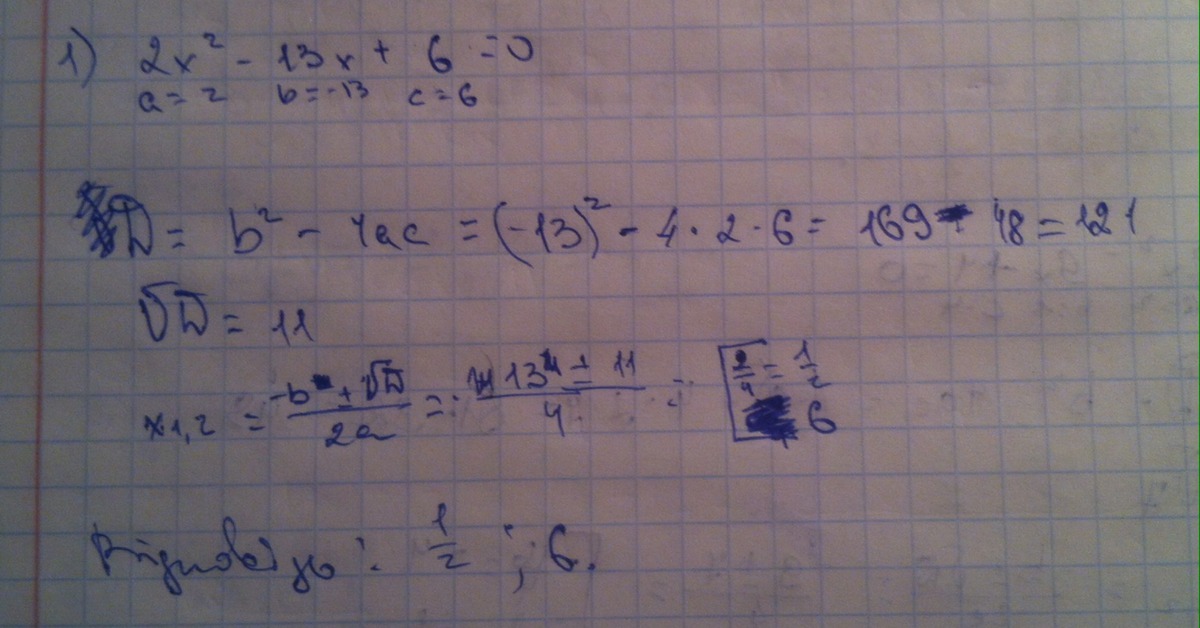 1) 2x² - 13x + 6 = 0
a = 2 b = -13 c = 6
D = b² - 4ac = (-13)² - 4 · 2 · 6 = 169 - 48 = 121
√D = 11
x1,2 = -b ± √D / 2a = 13 ± 11 / 4 = [ 2/4 = 1/2
6
Відповідь: 1/2 ; 6.